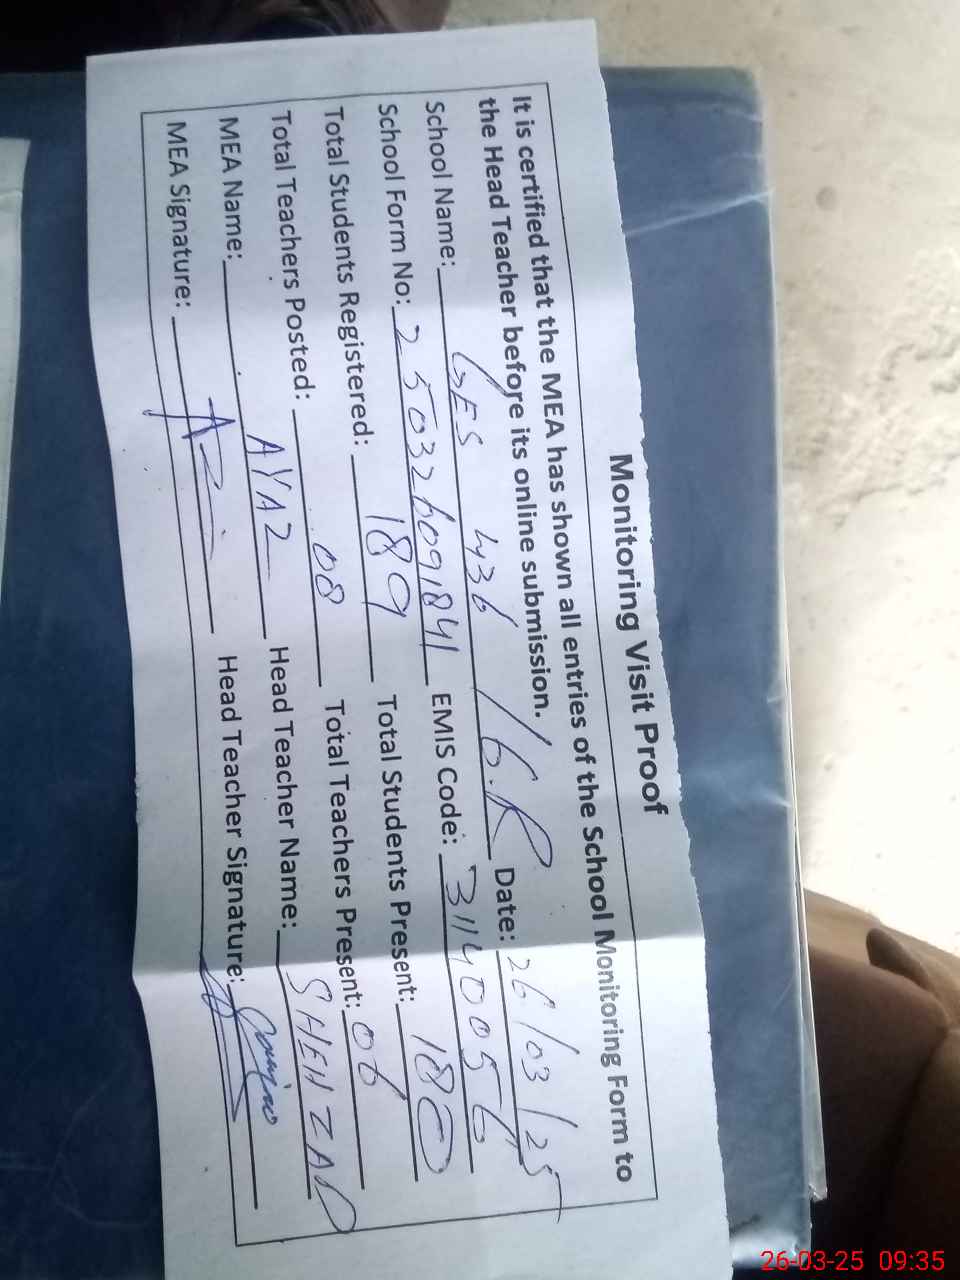 Monitoring Visit Proof
It is certified that the MEA has shown all entries of the School Monitoring Form to
the Head Teacher before its online submission.
School Name: GES 436 /6.R Date: 26/03/25
School Form No: 250326091841 EMIS Code: 31140056
Total Students Registered: 189 Total Students Present: 180
Total Teachers Posted: 08 Total Teachers Present: 06
MEA Name: AYAZ Head Teacher Name: SHEHZAD
MEA Signature: Head Teacher Signature:
26-03-25 09:35